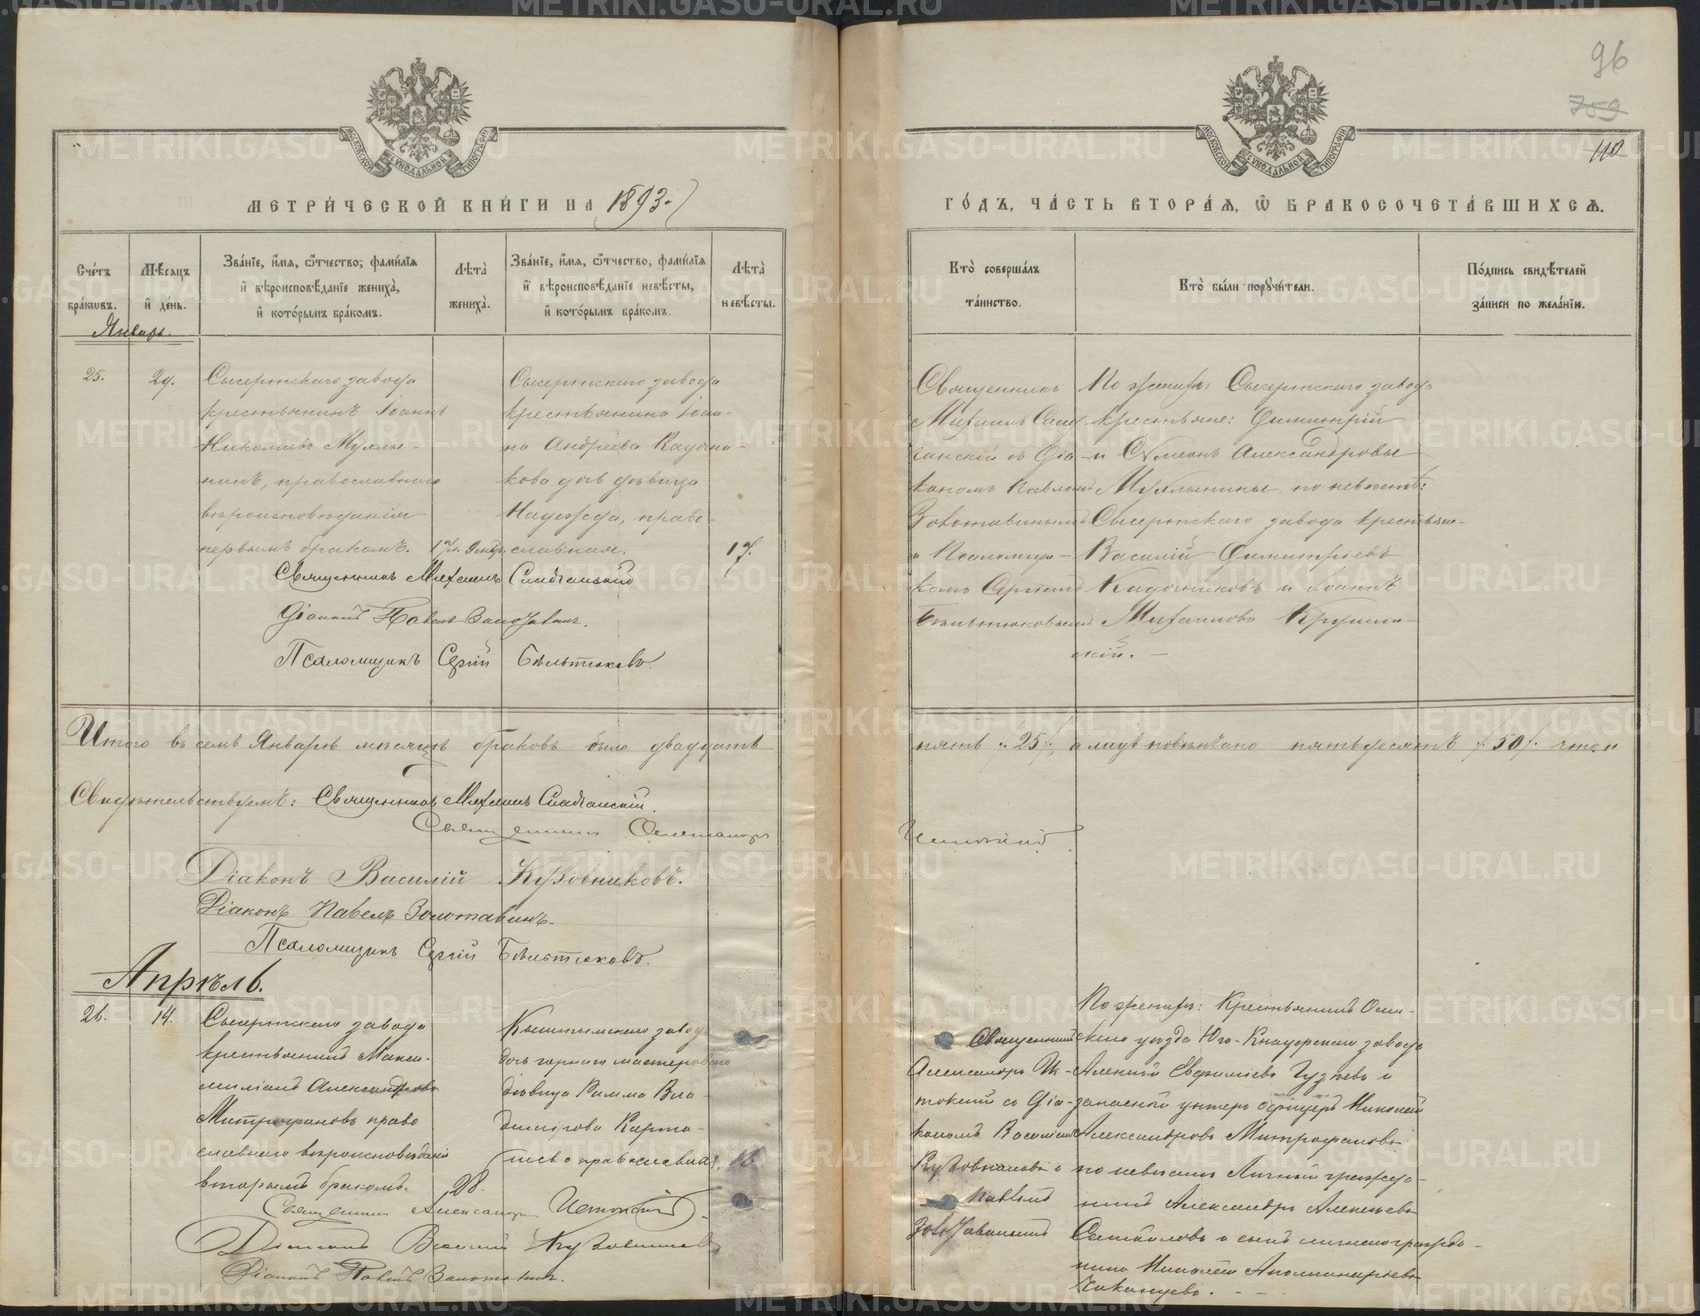 96
759
110
МЕТРИ́ЧЕСКОЙ КНИ́ГИ НА 1893.
ГО́ДЪ, ЧА́СТЬ ВТОРА́Я, Ѡ БРАКОСОЧЕТА́ВШИХСѦ.
Сче́тъ бра́кѡвъ.
Мѣ́сяцъ и де́нь.
Зва́нїе, и́мя, ѻ́тчество, фамѝлїя и вѣроисповѣ́данїе жениха̀, и кото́рымъ бра́комъ.
Лѣта̀ жениха̀.
Зва́нїе, и́мя, ѻ́тчество, фамѝлїя и вѣроисповѣ́данїе невѣ́сты, и кото́рымъ бра́комъ.
Лѣта̀ невѣ́сты.
Кто̀ соверша́лъ та́инство.
Кто̀ бы́ли порꙋчи́тели.
По́дпись свидѣ́телей за́писи по жела́нїю.
Январь.
25.
29.
Сысертскаго завода
крестьянинъ Іоаннъ
Николаевъ Мулты-
нинъ, православнаго
вѣроисповѣданія
первымъ бракомъ.
Сысертскаго завода
крестьянина Іоан-
на Андреева Кадочни-
кова дочь дѣвица
Надежда, право-
славная.
17.
Священникъ
Михаилъ
съ Діа-
кономъ Павломъ
Золотавинымъ
и Псаломщи-
комъ Сергіемъ
Бѣльтюковымъ
По женихѣ: Сысертскаго завода
крестьяне: Димитрій
и Сѵмеонъ Александровы
по невѣстѣ:
Сысертскаго завода крестьяне
Василій Димитріевъ
Кадочниковъ и Іоаннъ
Михаиловъ
скій.
Священникъ Михаилъ
Діаконъ Павелъ Золотавинъ.
Псаломщикъ Сергій Бѣльтюковъ.
Итого въ семъ Январѣ мѣсяцѣ браковъ было двадцать
пять /25/, а лицъ повѣнчано пятьдесятъ /50/.
Свидѣтельствуемъ: Священникъ Михаилъ
Священникъ Александръ
Діаконъ Василій Кузовниковъ.
Діаконъ Павелъ Золотавинъ.
Псаломщикъ Сергій Бѣльтюковъ.
Апрѣль.
26.
14.
Сысертскаго завода
крестьянинъ Макси-
миліанъ Александровъ
Митрофановъ право
славнаго вѣроисповѣданія
вторымъ бракомъ.
28.
Кыштымскаго завода
дочь горнаго мастероваго
дѣвица Римма Вла-
димірова Карпо-
православная.
18.
Священникъ
Александръ
съ Діа-
кономъ Василіемъ
Кузовниковымъ и
Павломъ
Золотавинымъ
По женихѣ: Крестьянинъ Осин-
скаго уѣзда Юго-Кнауфскаго завода
Алексій Евфиміевъ и
запасный унтеръ офицеръ Николай
Александровъ Митрофановъ
по невѣстѣ Личный гражда-
нинъ Александръ Алексѣевъ
и сынъ личнаго гражда-
нина Николай Аполлинаріевъ
Чиканцевъ.
Священникъ Александръ
Діаконъ Василій Кузовниковъ
Діаконъ Павелъ Золотавинъ.
METRIKI.GASO-URAL.RU